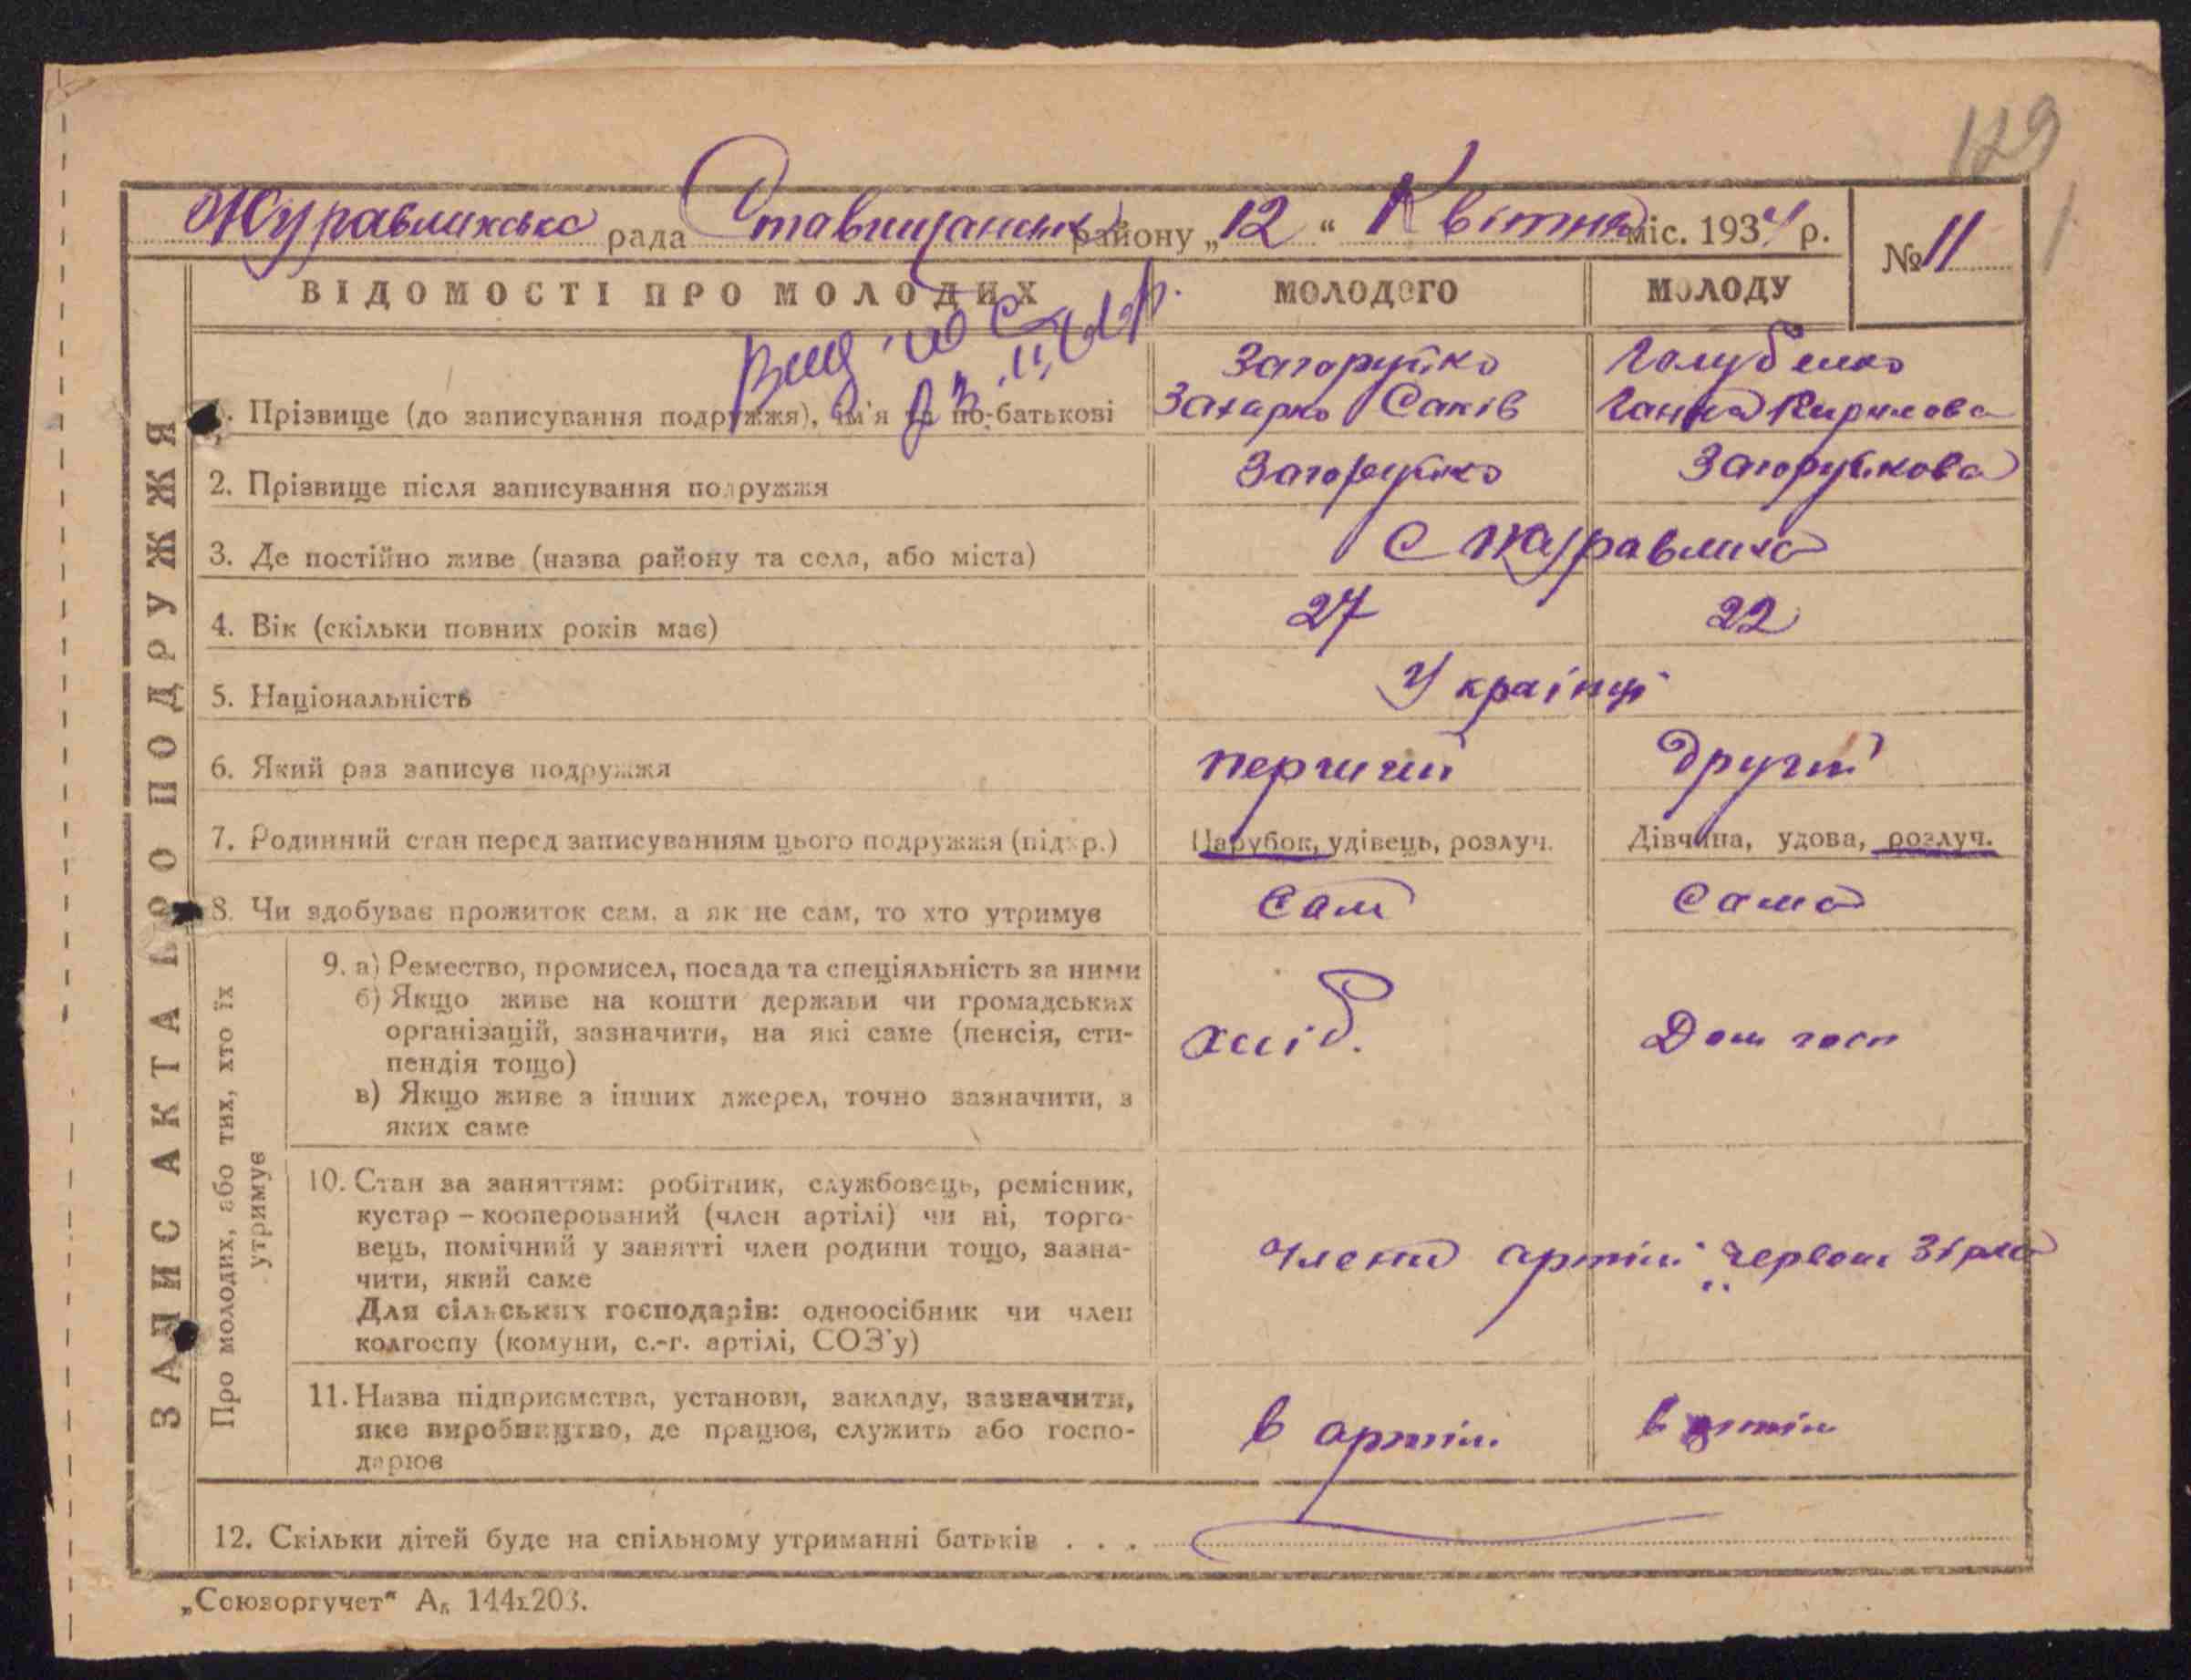 129
Журавлихська рада Ставищанськ району „12“ Квітня міс. 1934 р.
№ 11
ВІДОМОСТІ ПРО МОЛОДИХ
МОЛОДОГО
МОЛОДУ
ЗАПИС АКТА ПРО ПОДРУЖЖЯ
1. Прізвище (до записування подружжя), ім'я та по-батькові
Загоруйко
Захарко Саків
Голубенко
Ганна Кирилова
2. Прізвище після записування подружжя
Загоруйко
Загоруйкова
3. Де постійно живе (назва району та села, або міста)
С Журавлиха
4. Вік (скільки повних років має)
27
22
5. Національність
Українці
6. Який раз записує подружжя
перший
другий
7. Родинний стан перед записуванням цього подружжя (підкр.)
Парубок, удівець, розлуч.
Дівчина, удова, розлуч.
8. Чи здобуває прожиток сам, а як не сам, то хто утримує
Сам
Сама
Про молодих, або тих, хто їх
утримує
9. а) Ремество, промисел, посада та спеціяльність за ними
б) Якщо живе на кошти держави чи громадських
організацій, зазначити, на які саме (пенсія, сти-
пендія тощо)
в) Якщо живе з інших джерел, точно зазначити, з
яких саме
хліб.
Дом госп
10. Стан за заняттям: робітник, службовець, ремісник,
кустар – кооперований (член артілі) чи ні, торго-
вець, помічний у занятті член родини тощо, зазна-
чити, який саме
Для сільських господарів: одноосібник чи член
колгоспу (комуни, с.-г. артілі, СОЗ'у)
члени артіли Червона Зірка
11. Назва підприємства, установи, закладу, зазначити,
яке виробництво, де працює, служить або госпо-
дарює
в артіли
в артіли
12. Скільки дітей буде на спільному утриманні батьків . . .
„Союзоргучет“ А₅ 144х203.